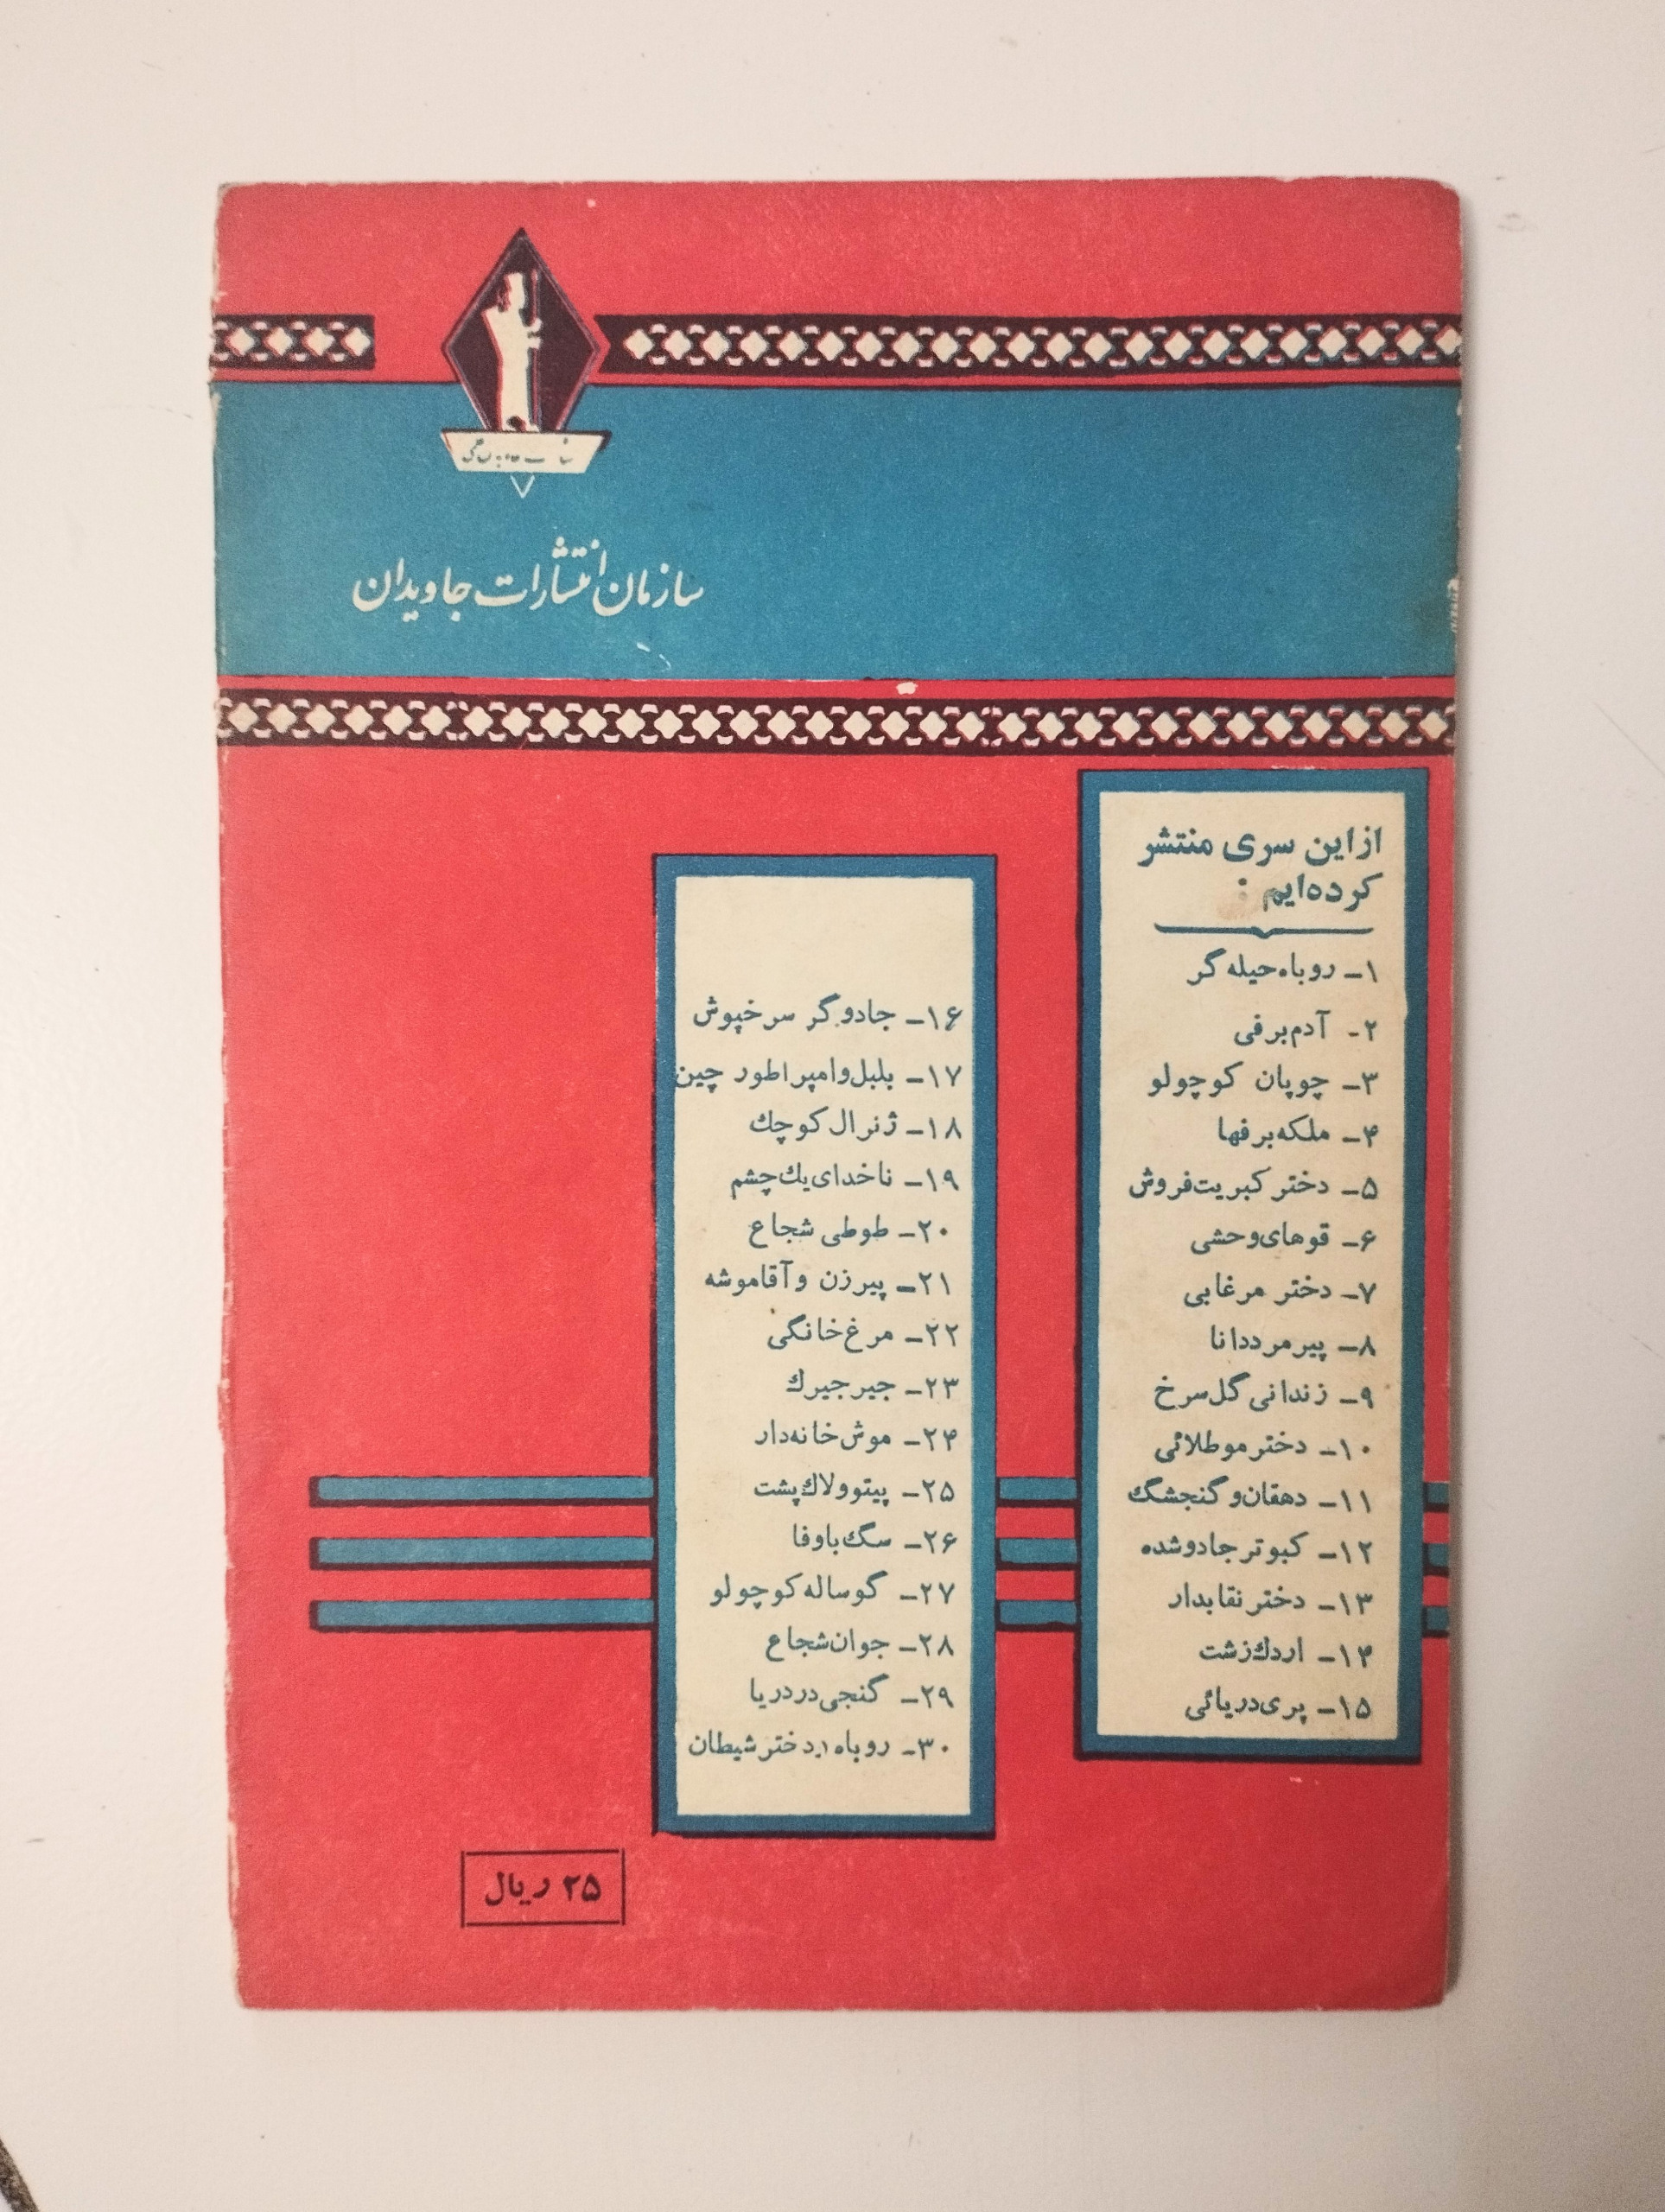 سازمان انتشارات جاویدان
از این سری منتشر
کرده‌ایم :
۱ـ روباه حیله گر
۲ـ آدم برفی
۳ـ چوپان کوچولو
۴ـ ملکه برفها
۵ـ دختر کبریت فروش
۶ـ قوهای وحشی
۷ـ دختر مرغابی
۸ـ پیر مرد دانا
۹ـ زندانی گل سرخ
۱۰ـ دختر مو طلائی
۱۱ـ دهقان و گنجشگ
۱۲ـ کبوتر جادو شده
۱۳ـ دختر نقابدار
۱۴ـ اردك زشت
۱۵ـ پری دریائی
۱۶ـ جادو گر سرخپوش
۱۷ـ بلبل و امپراطور چین
۱۸ـ ژنرال کوچك
۱۹ـ ناخدای يك چشم
۲۰ـ طوطی شجاع
۲۱ـ پیر زن و آقا موشه
۲۲ـ مرغ خانگی
۲۳ـ جیر جیرك
۲۴ـ موش خانه‌دار
۲۵ـ پیتو و لاك پشت
۲۶ـ سگ باوفا
۲۷ـ گوساله کوچولو
۲۸ـ جوان شجاع
۲۹ـ گنجی در دریا
۳۰ـ روباه دختر شیطان
۲۵ ریال